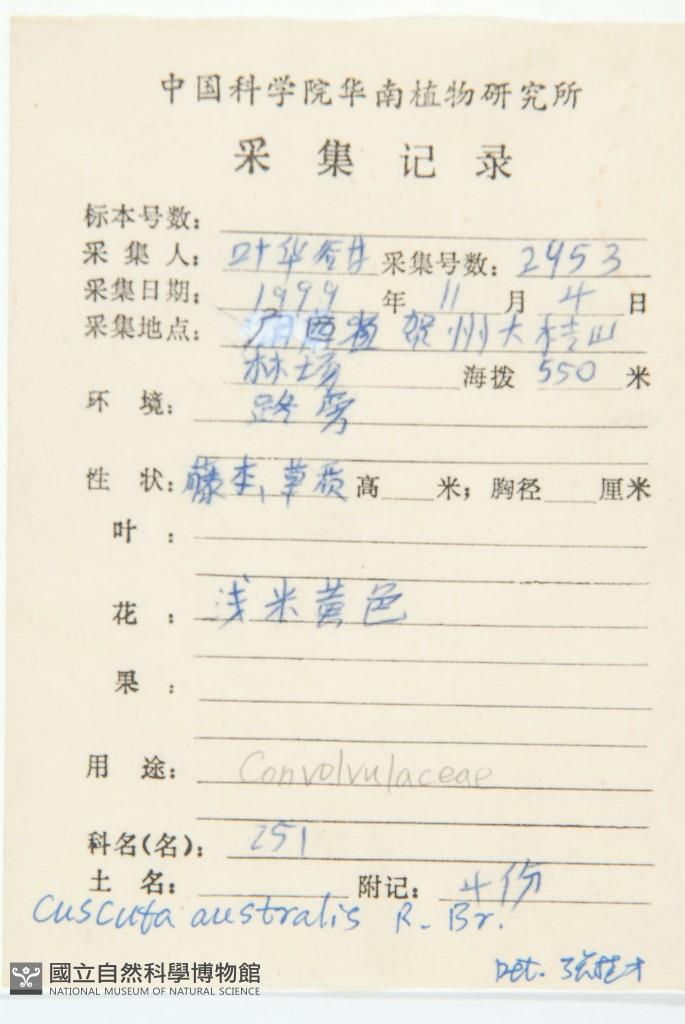 中国科学院华南植物研究所
采集记录
标本号数:
采集人: 叶华谷 采集号数: 2953
采集日期: 1999 年 11 月 4 日
采集地点: 广西 贺州大桂山
林场 海拨 550 米
环境: 路旁
性状: 藤本, 草质 高 米; 胸径 厘米
叶:
花: 浅米黄色
果:
用途: Convolvulaceae
科名(名): 251
土名: 附记: 4份
Cuscuta australis R. Br.
Det. 张桂才
國立自然科學博物館
NATIONAL MUSEUM OF NATURAL SCIENCE